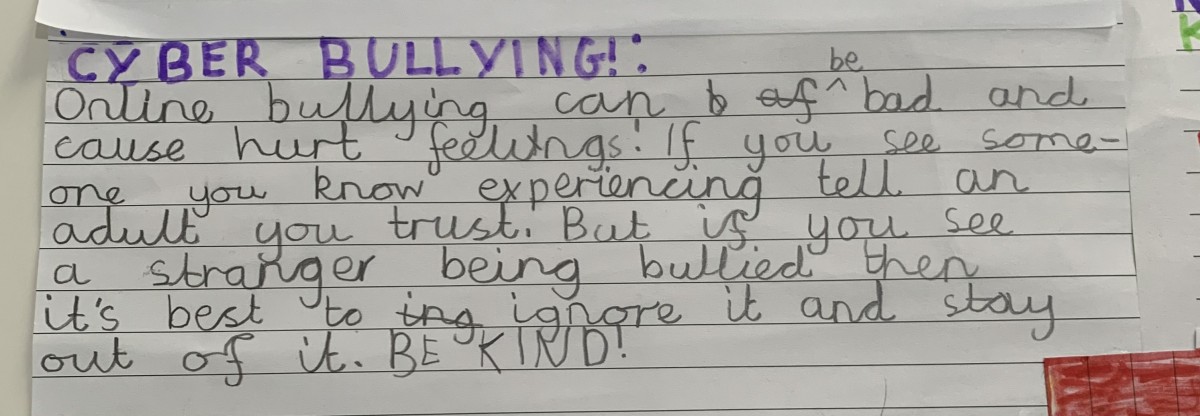 CYBER BULLYING!:
Online bullying can b of ^be bad and
cause hurt feelings! If you see some-
one you know experiencing tell an
adult you trust. But if you see
a stranger being bullied then
it's best to ing ignore it and stay
out of it. BE KIND!